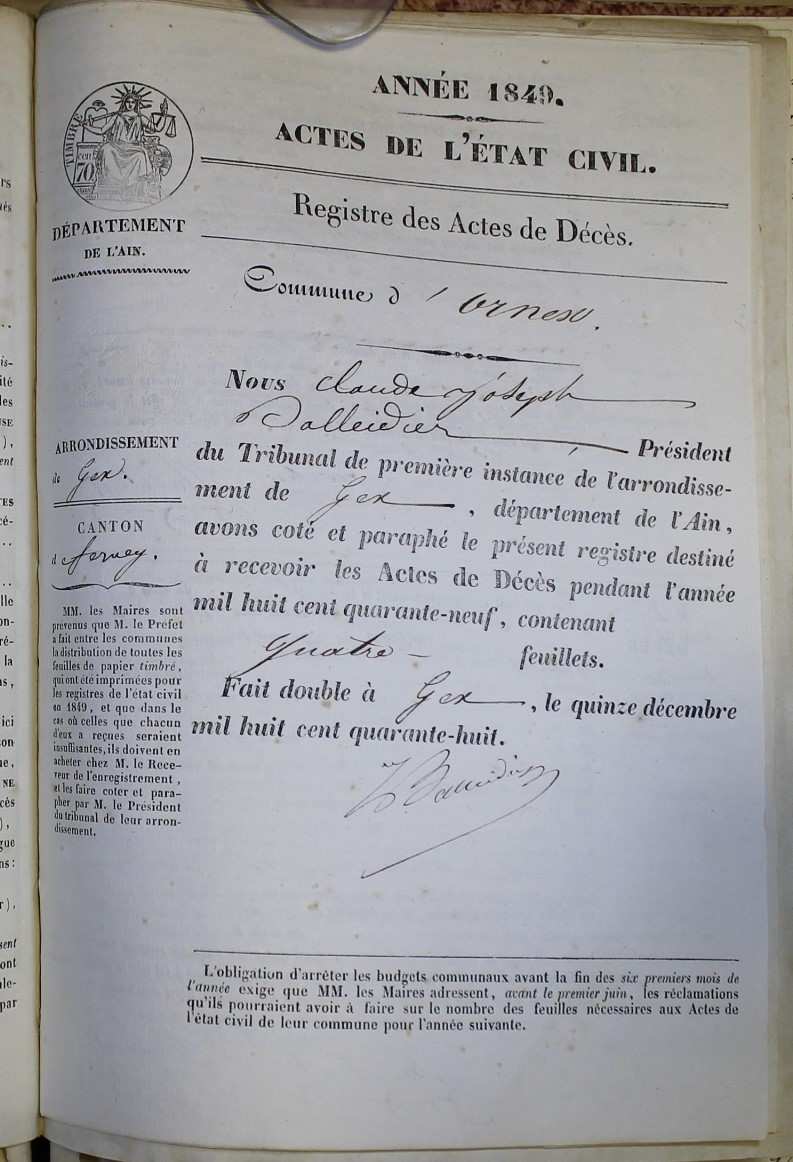 ANNÉE 1849.
ACTES DE L'ÉTAT CIVIL.
TIMBRE
70
DÉPARTEMENT
DE L'AIN.
Registre des Actes de Décès.
Commune d'Ornex.
Nous Claude Joseph
Balleidier Président
du Tribunal de première instance de l'arrondisse-
ment de Gex, département de l'Ain,
avons coté et paraphé le présent registre destiné
à recevoir les Actes de Décès pendant l'année
mil huit cent quarante-neuf, contenant
quatre feuillets.
Fait double à Gex, le quinze décembre
mil huit cent quarante-huit.
Balleidier
ARRONDISSEMENT
de Gex.
CANTON
d ferney.
MM. les Maires sont
prévenus que M. le Préfet
a fait entre les communes
la distribution de toutes les
feuilles de papier timbré,
qui ont été imprimées pour
les registres de l'état civil
en 1849, et que dans le
cas où celles que chacun
d'eux a reçues seraient
insuffisantes, ils doivent en
acheter chez M. le Rece-
veur de l'enregistrement,
et les faire coter et para-
pher par M. le Président
du tribunal de leur arron-
dissement.
L'obligation d'arrêter les budgets communaux avant la fin des six premiers mois de
l'année exige que MM. les Maires adressent, avant le premier juin, les réclamations
qu'ils pourraient avoir à faire sur le nombre des feuilles nécessaires aux Actes de
l'état civil de leur commune pour l'année suivante.